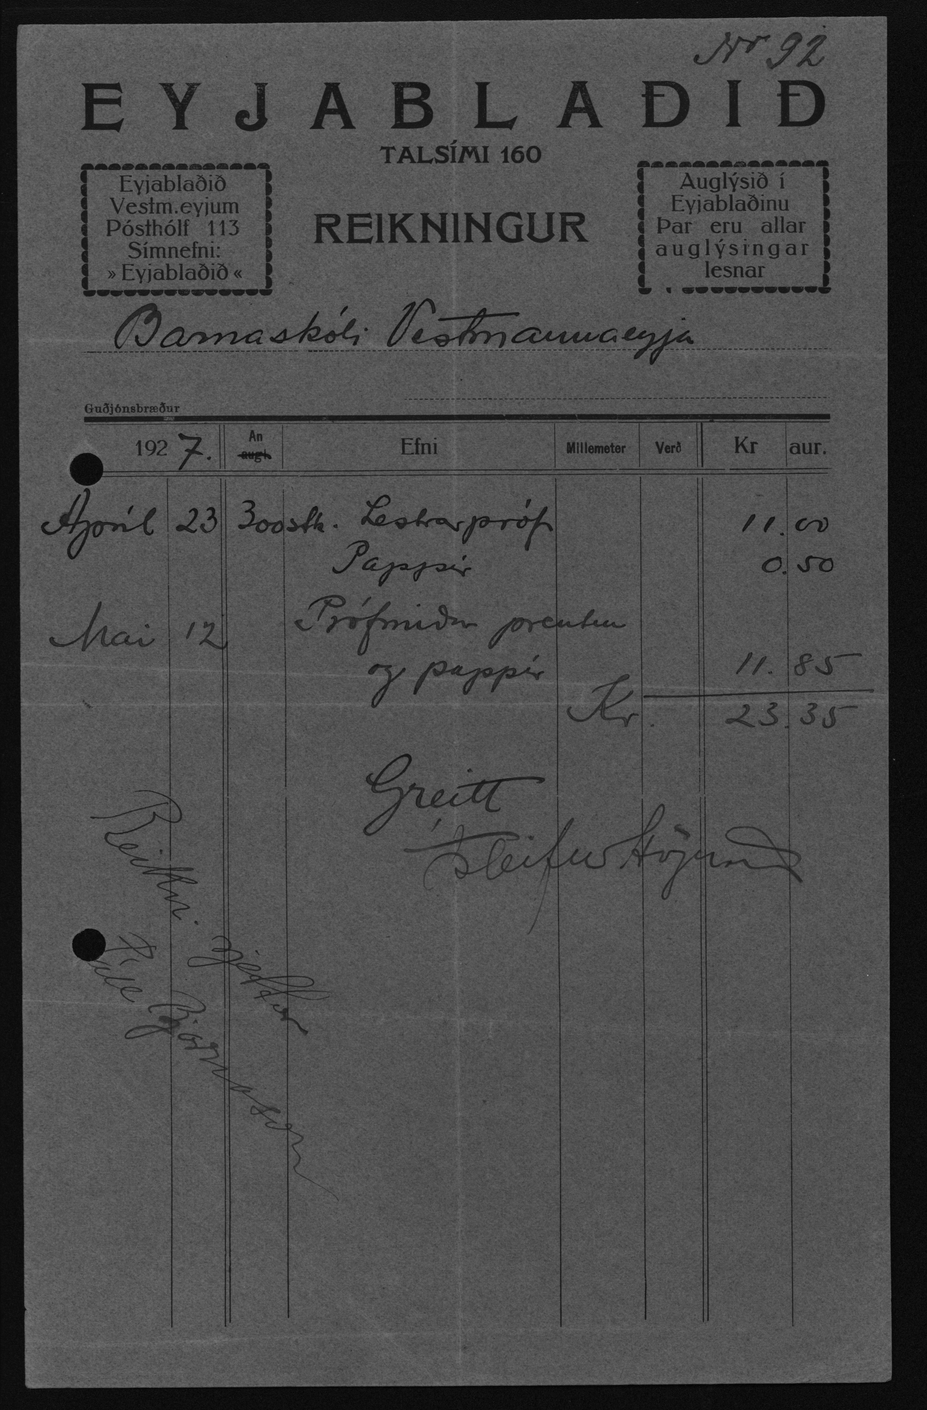 Nr 92
EYJABLAÐIÐ
TALSÍMI 160
Eyjablaðið
Vestm.eyjum
Pósthólf 113
Símnefni:
»Eyjablaðið«
REIKNINGUR
Auglýsið í
Eyjablaðinu
Þar eru allar
auglýsingar
lesnar
Barnaskóli Vestmannaeyja
Guðjónsbræður
1927. An augl. Efni Millemeter Verð Kr aur.
Apríl 23 300 stk. Lestrarpróf 11.00
Pappír 0.50
Mai 12 Prófmiðar prentun
og pappír 11.85
Kr. 23.35
Greitt
Ísleifur Högnason
Reikn. rjettur
Páll Bjarnason